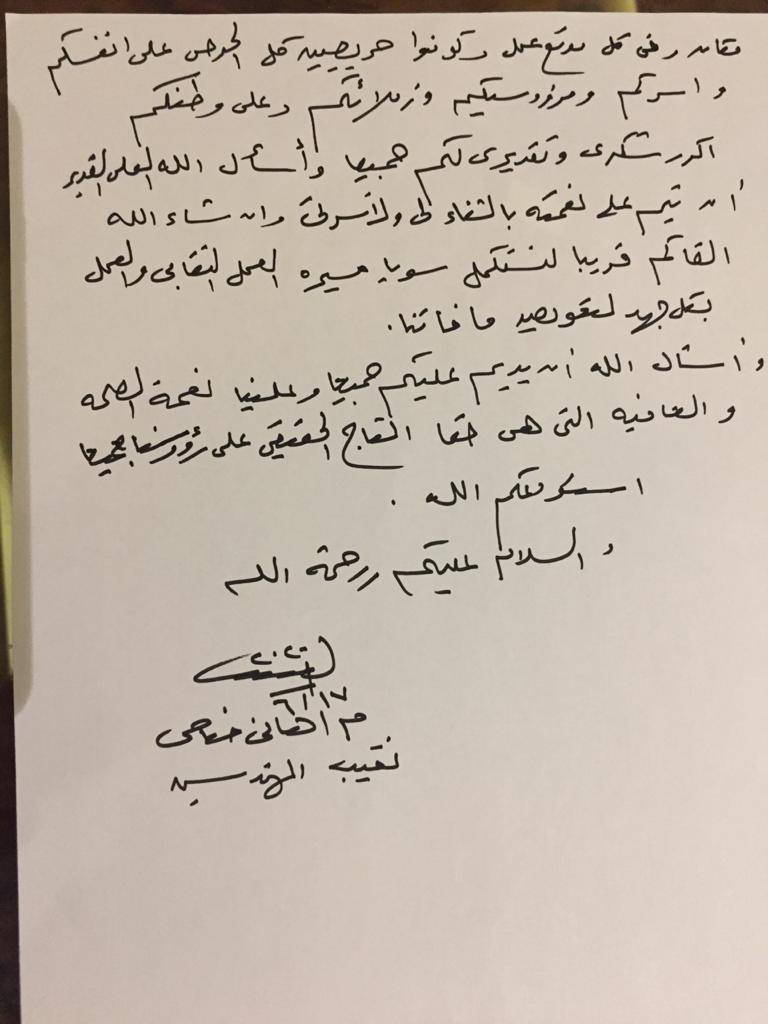 مكان وفى كل موقع عمل وكونوا حريصين كل الحرص على انفسكم
واسركم ومرؤوسيكم وزملائكم وعلى وطنكم
اكرر شكرى وتقديرى لكم جميعا وأسأل الله العلى القدير
أن يتم على نعمته بالشفاء لى ولأسرتى وان شاء الله
القاكم قريبا لنستكمل سويا مسيره العمل النقابى والعمل
بكل جهد لتعويض ما فاتنا.
وأسأل الله أن يديم عليكم جميعا وعلينا نعمة الصحه
والعافيه التى هى حقا التاج الحقيقى على رؤوسنا جميعا
استودعكم الله .
والسلام عليكم ورحمة الله
٢٠٢٠
٦/١٧
م / هانى ضاحى
نقيب المهندسين